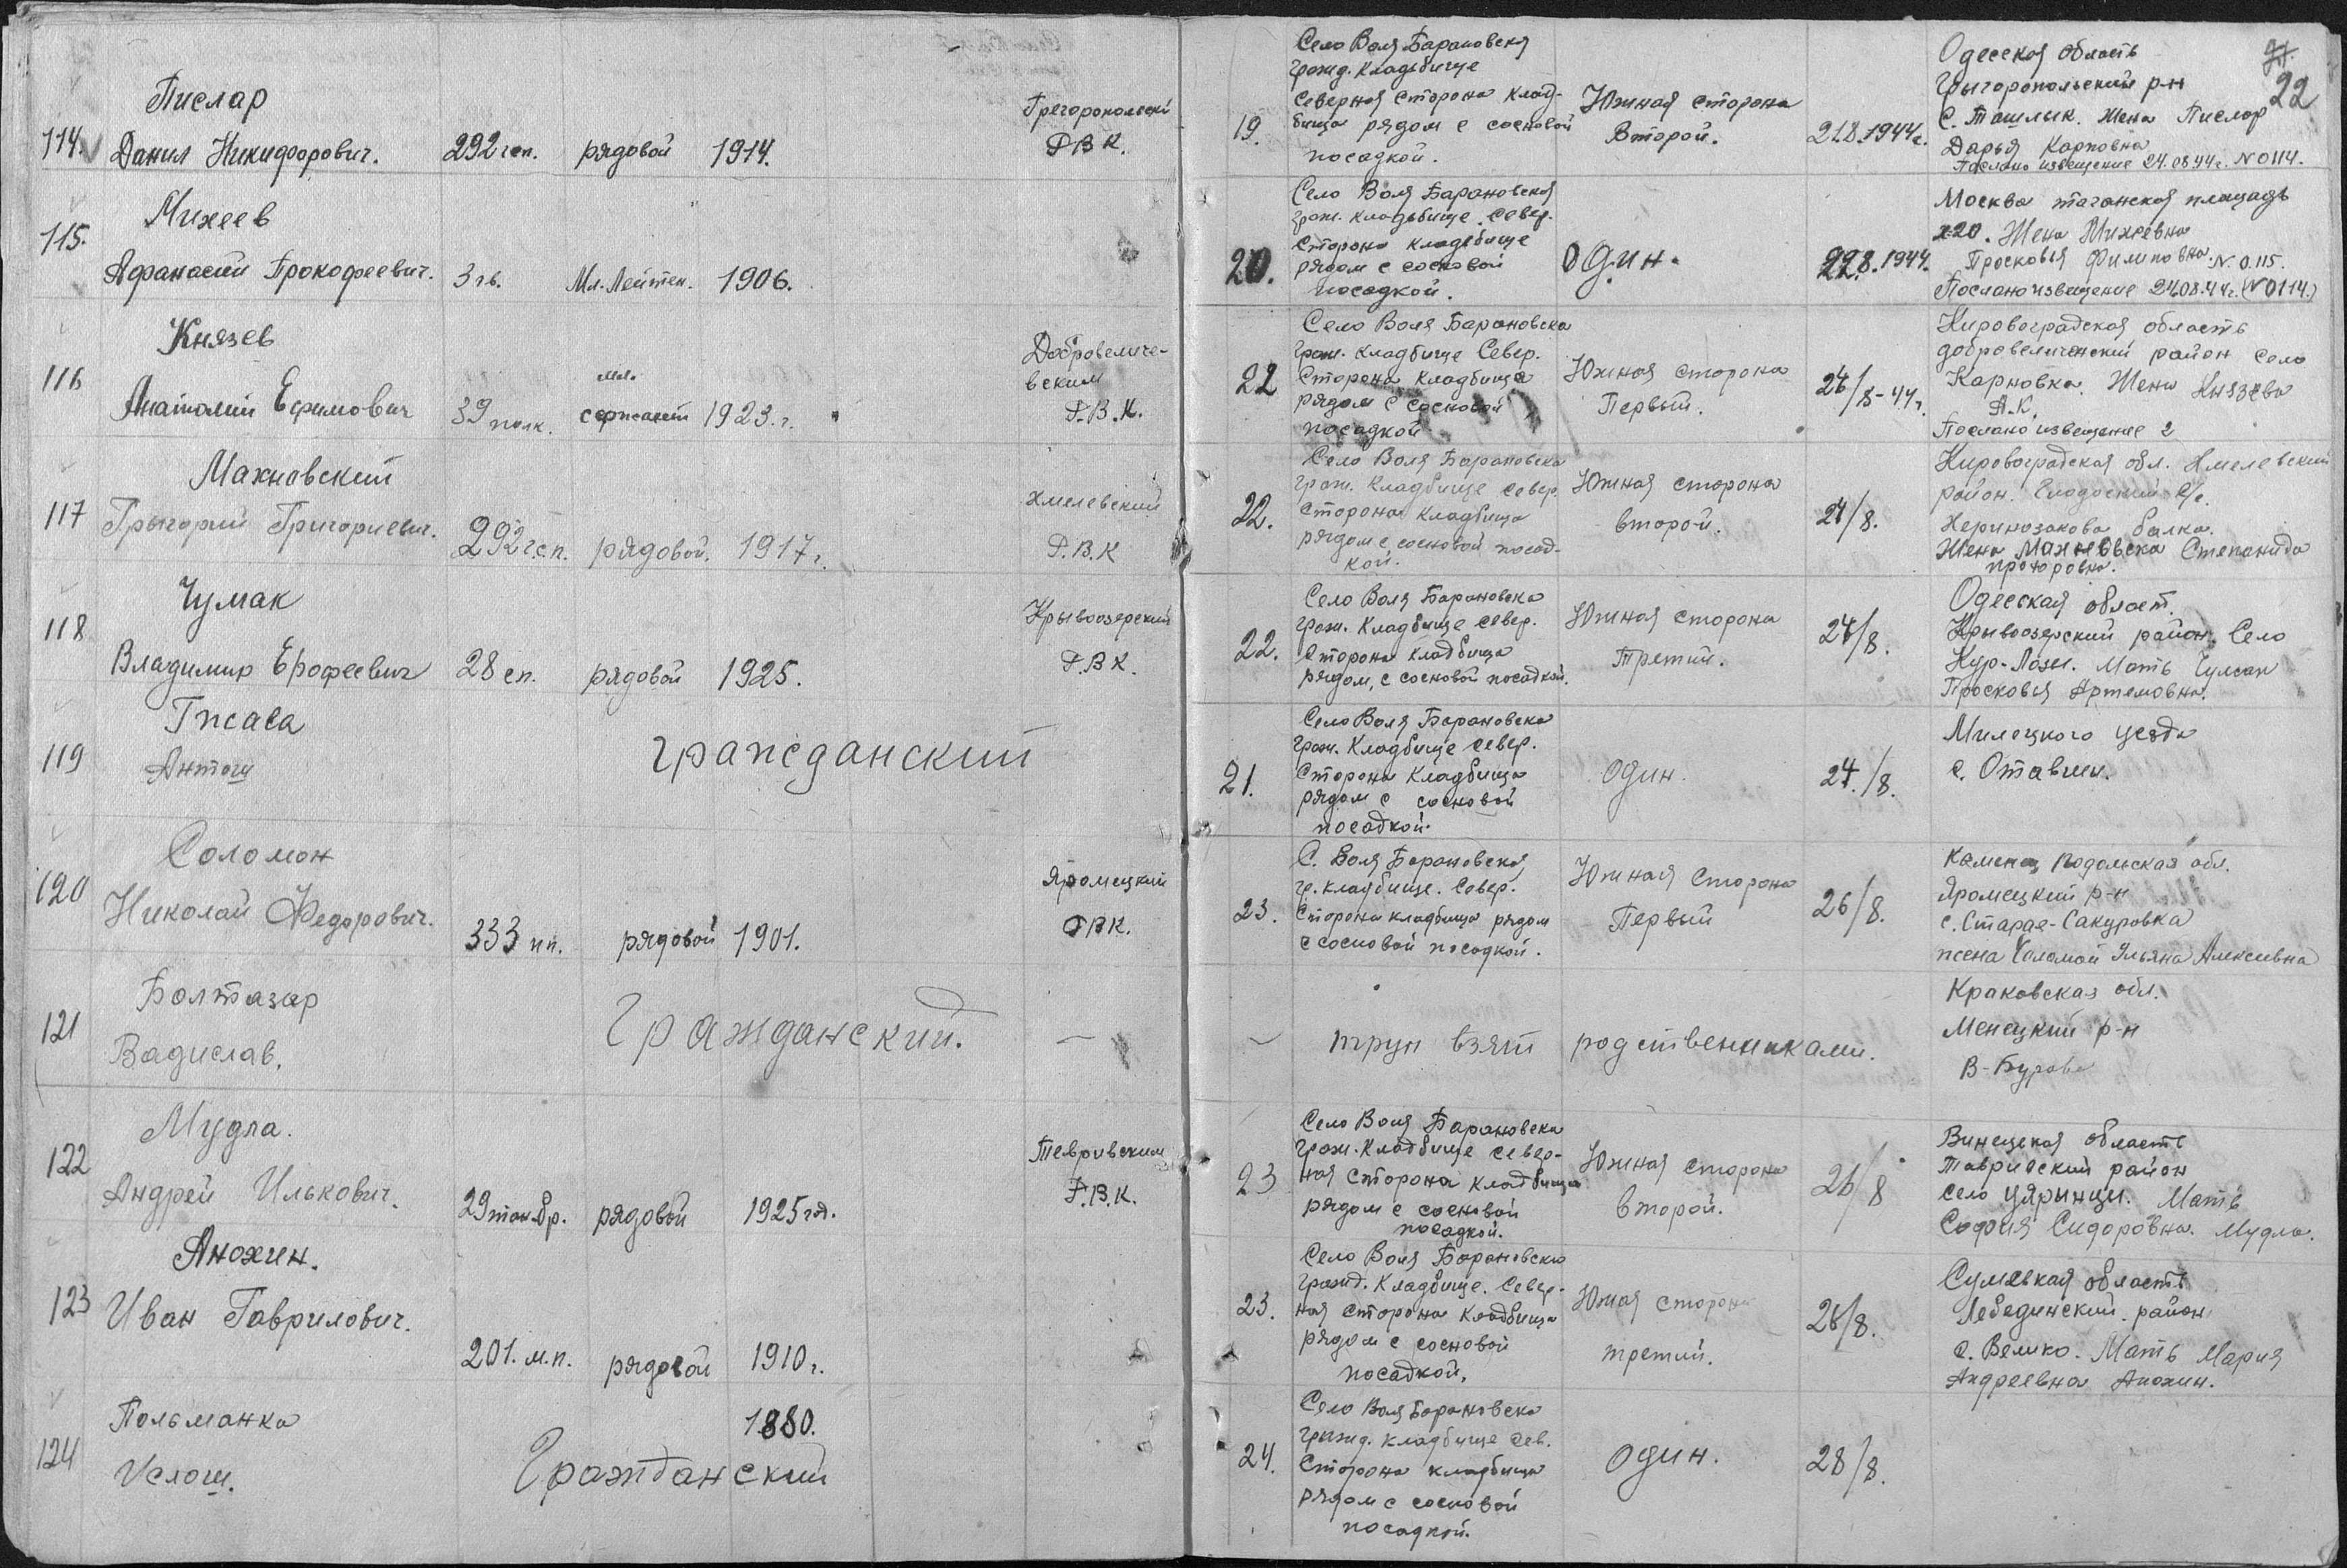 22
Пислар
114. Данил Никифорович. 292 гсп. рядовой 1914.
Р.В.К.
19. Село Воля Барановска
гражд. Кладьбище
Северная сторона клад-
бища рядом с сосновой
посадкой.
Южная сторона
Второй.
21.8.1944г.
Одесская область
Григоропольский р-н
С. Ташлык. Жена Пислар
Дарья Карповна
Послано извещение 24.08.44г. N 0114.
Михеев
115. Афанасий Прокофеевич. 3 гв. Мл. Лейтен. 1906.
20. Село Воля Барановска
граж. кладьбище Север.
Сторона кладьбище
рядом с сосновой
посадкой.
Один.
22.8.1944.
Москва таганская площадь
Жена Михеевна
Просковья Филиповна. N. 0.115.
Послано извещение 24.08.44г. (N 0114.)
Князев
116 Анатолий Ефимович 39 полк. мл. сержант 1923.г.
Добровеличе-
вским
Р.В.К.
22 Село Воля Барановска
граж. Кладбище Север.
Сторона Кладбища
рядом с сосновой
посадкой
Южная сторона
Первый.
24/8-44г.
Кировоградская область
добровеличанский район село
Карновка. Жена Князева
А.К.
Послано извещение 2
Махновский
117 Грыгорий Григориевич. 292 г.с.п. рядовой. 1917г.
Хмелевский
Р.В.К
22. Село Воля Барановска
граж. Кладбище север.
сторона Кладбища
рядом с сосновой посад-
кой.
Южная сторона
второй.
24/8.
Кировоградская обл. Хмелевский
район. с/с.
балка.
Жена Махновска Степанида
прохоровна.
Чумак
118 Владимир Ерофеевич 28 сп. рядовой 1925.
Крывоозерский
Р.В.К.
22. Село Воля Барановска
граж. Кладбище север.
Сторона кладбища
рядом, с сосновой посадкой.
Южная сторона
Третий.
24/8.
Одесская област.
Крывоозерский район. Село
Кур-Лозы. Мать Чумак
Просковья Артемовна.
119 Антош гражданский
21. Село Воля Барановска
граж. Кладбище север.
Сторона Кладбища
рядом с сосновой
посадкой.
Один.
24./8.
Милецкого уезда
с. Отавшы.
Соломон
120 Николай Федорович. 333 пп. рядовой 1901.
Яромецкий
РВК.
23. С. Воля Барановска,
гр. кладбище. Север.
Сторона кладбища рядом
с сосновой посадкой.
Южная Сторона
Первый
26/8.
Каменец Подольская обл.
Яромецкий р-н
с. Старая-Сакуровка
жена Соломон Ульяна Алексеевна
Болтазар
121 Вадислав. Гражданский. —
— труп взят родственниками.
Краковская обл.
Менецкий р-н
В-Бурова
Мудла.
122 Андрей Илькович. 29 тан.бр. рядовой 1925 год.
Тевривским
Р.В.К.
23 Село Воля Барановска
граж. Кладбище север-
ная сторона Кладбища
рядом с сосновой
посадкой.
Южная сторона
второй.
26/8
Винецкая область
Тавривский район
село Цярынцы. Мать
София Сидоровна. Мудла.
Анохин.
123 Иван Гаврилович. 201. м.п. рядовой 1910г.
23. Село Воля Барановска
гражд. Кладбище. Север-
ная сторона Кладбища
рядом с сосновой
посадкой.
Южная сторона
третий.
26/8.
Сумськая область
Лебединский район
с. Велико. Мать Мария
Андреевна Анохин.
Польманка
124 Услош. Гражданский 1880.
24. Село Воля Барановска
гражд. кладбище сев.
Сторона кладбища
рядом с сосновой
посадкой.
Один.
28/8.